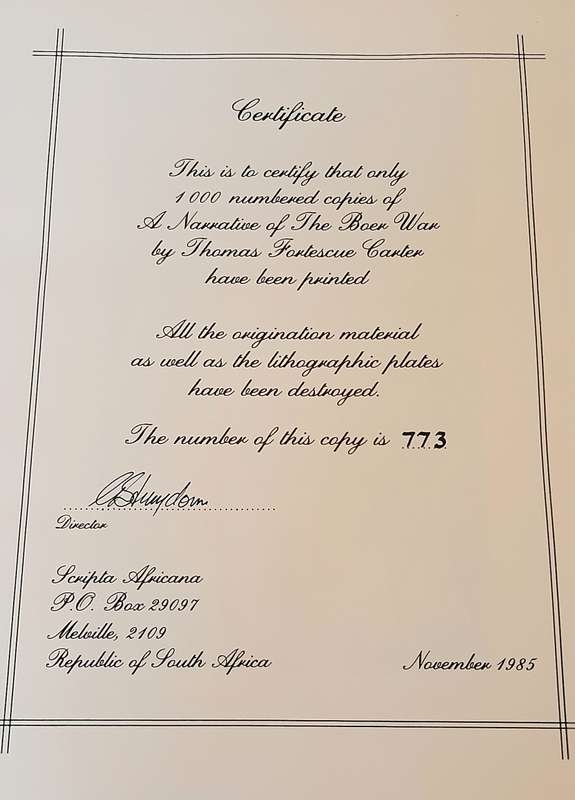 Certificate
This is to certify that only
1000 numbered copies of
A Narrative of The Boer War
by Thomas Fortescue Carter
have been printed
All the origination material
as well as the lithographic plates
have been destroyed.
The number of this copy is 773
Director
Scripta Africana
P.O. Box 29097
Melville, 2109
Republic of South Africa
November 1985